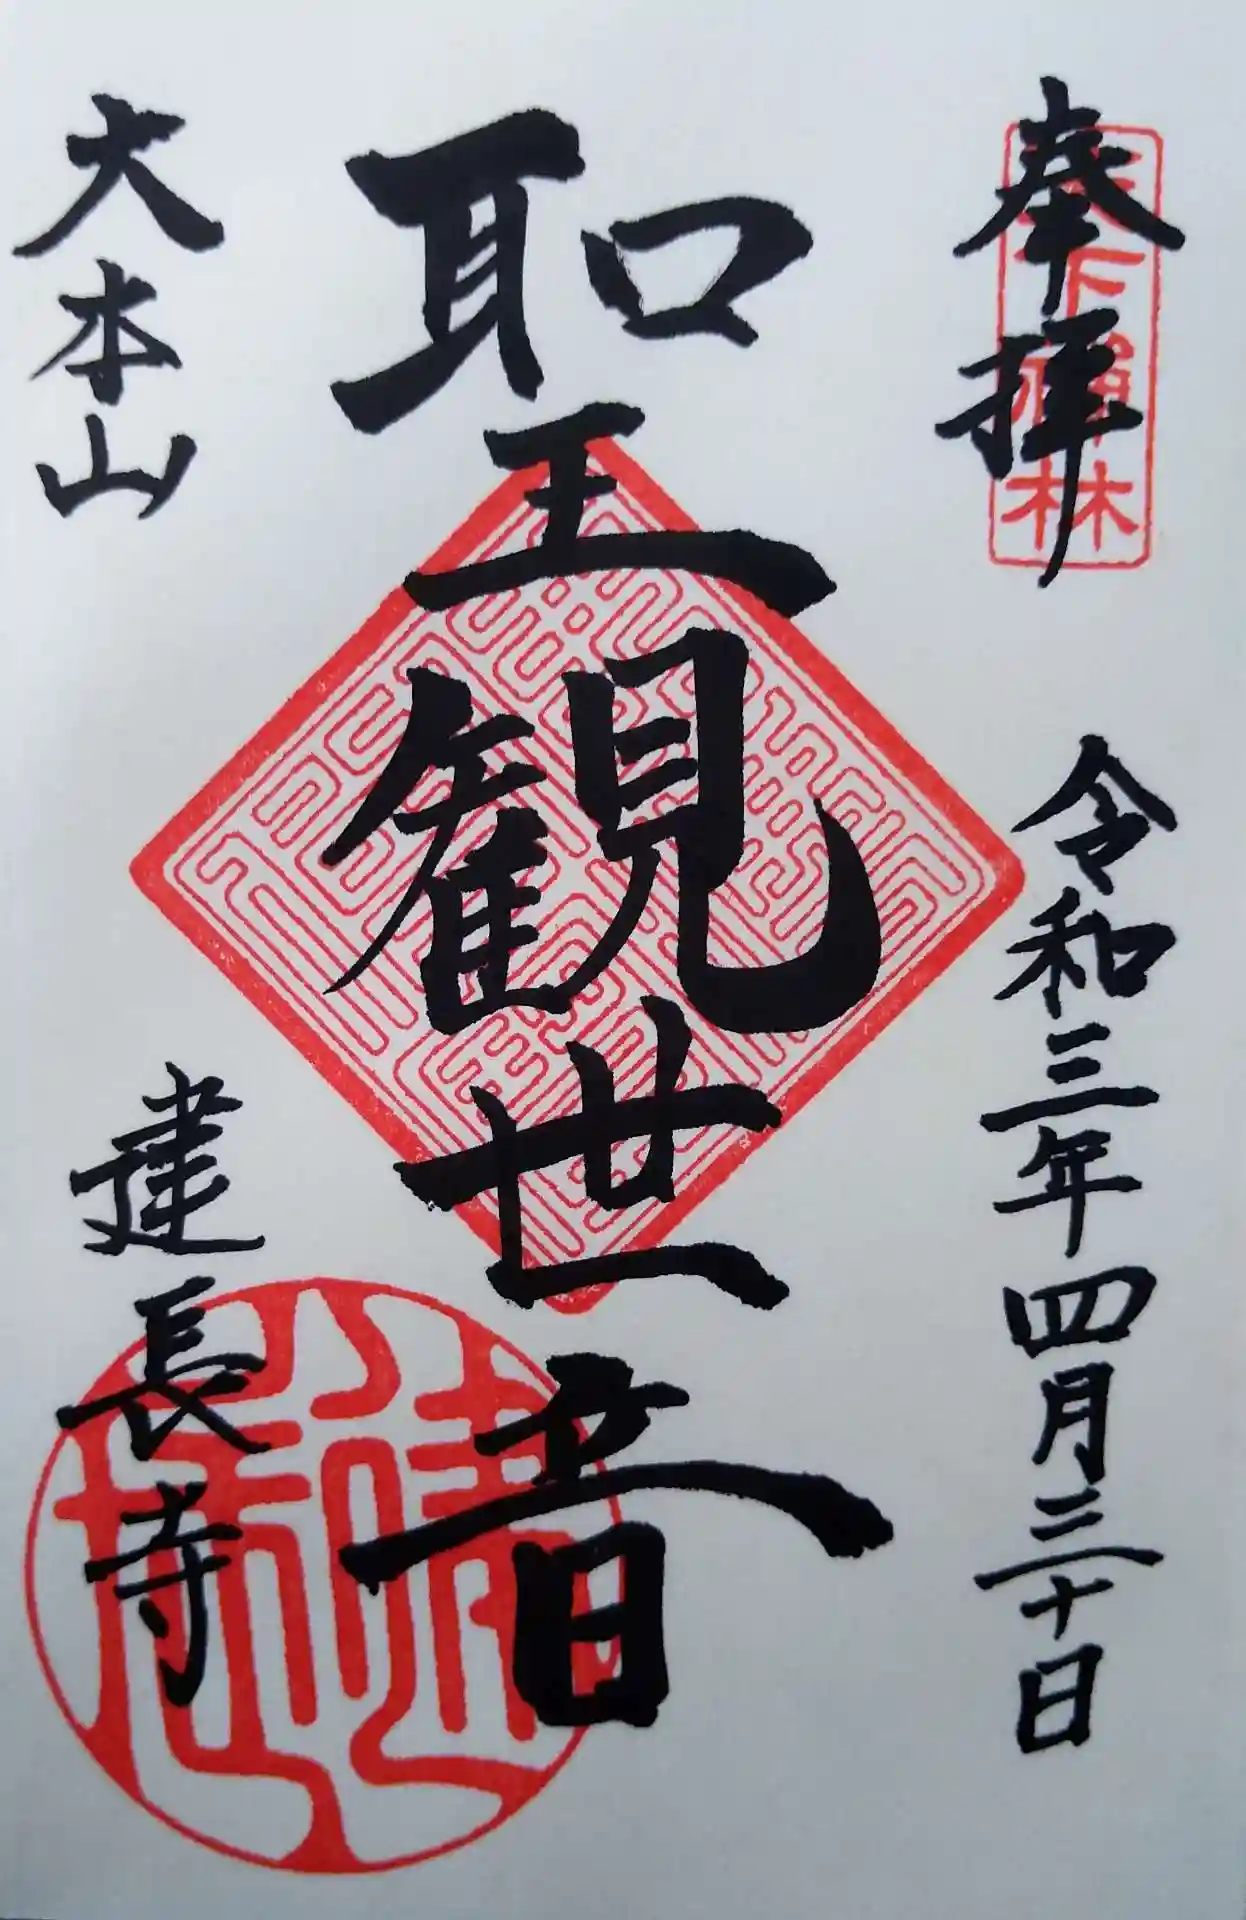 奉拝
天下禅林
令和三年四月三十日
聖観世音
大本山
建長寺